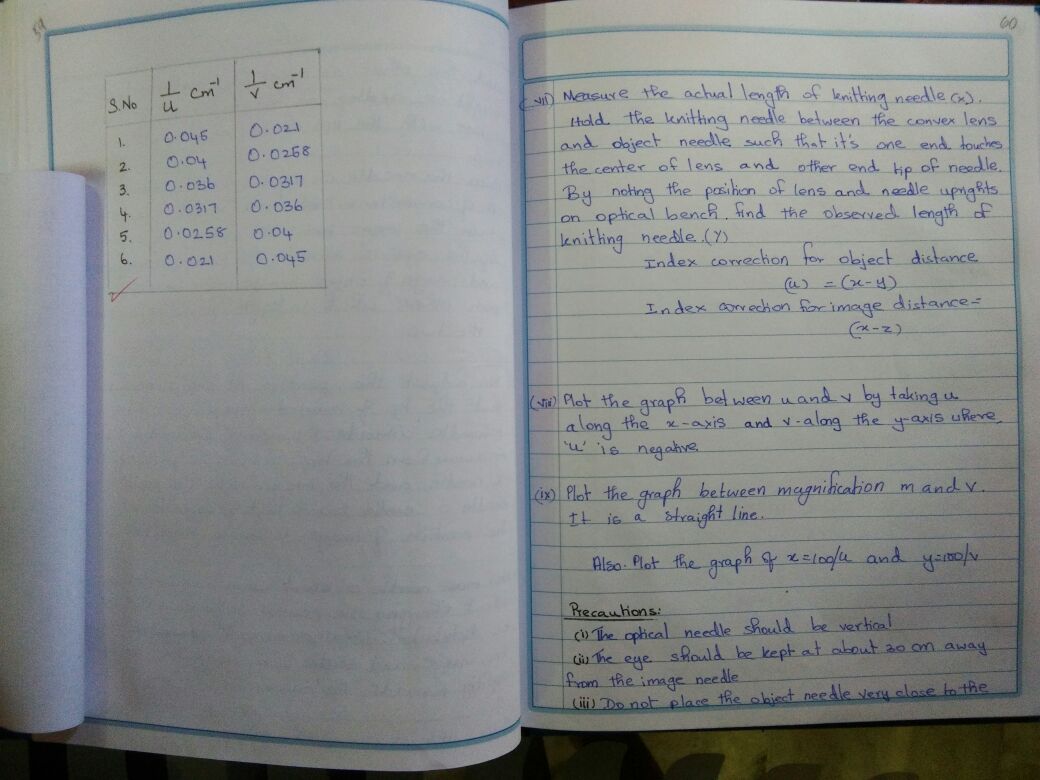 59
S.No 1/u cm⁻¹ 1/v cm⁻¹
1. 0.045 0.021
2. 0.04 0.0258
3. 0.036 0.0317
4. 0.0317 0.036
5. 0.0258 0.04
6. 0.021 0.045
60
(vii) Measure the actual length of knitting needle (x).
Hold the knitting needle between the convex lens
and object needle such that it's one end touches
the center of lens and other end tip of needle.
By noting the position of lens and needle uprights
on optical bench. find the observed length of
knitting needle.(Y)
Index correction for object distance
(u) = (x-y)
Index correction for image distance=
(x-z)
(viii) Plot the graph between u and v by taking u
along the x-axis and v-along the y-axis where,
'u' is negative.
(ix) Plot the graph between magnification m and v.
It is a straight line.
Also. Plot the graph of x=100/u and y=100/v
Precautions:
(i) The optical needle should be vertical
(ii) The eye should be kept at about 30 cm away
from the image needle
(iii) Do not place the object needle very close to the